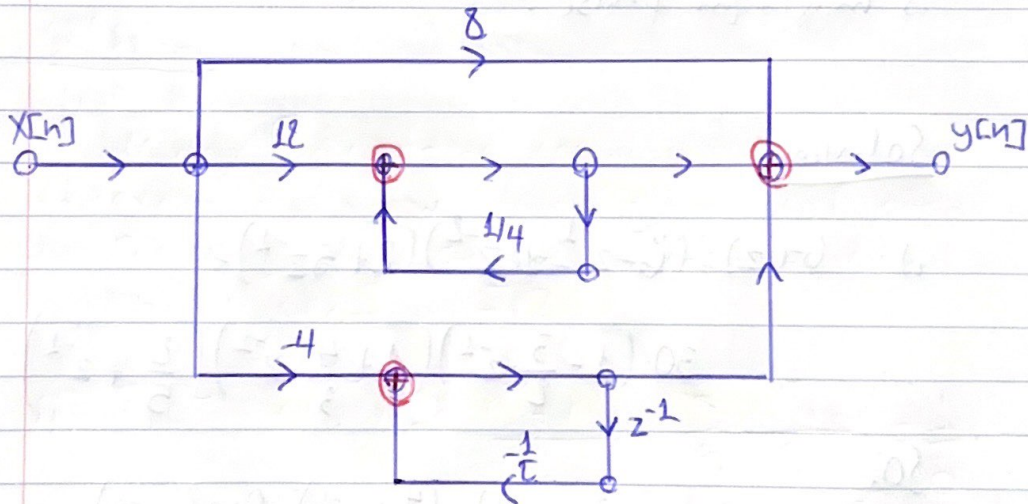 8
X[n]
12
y[n]
1/4
-4
z⁻¹